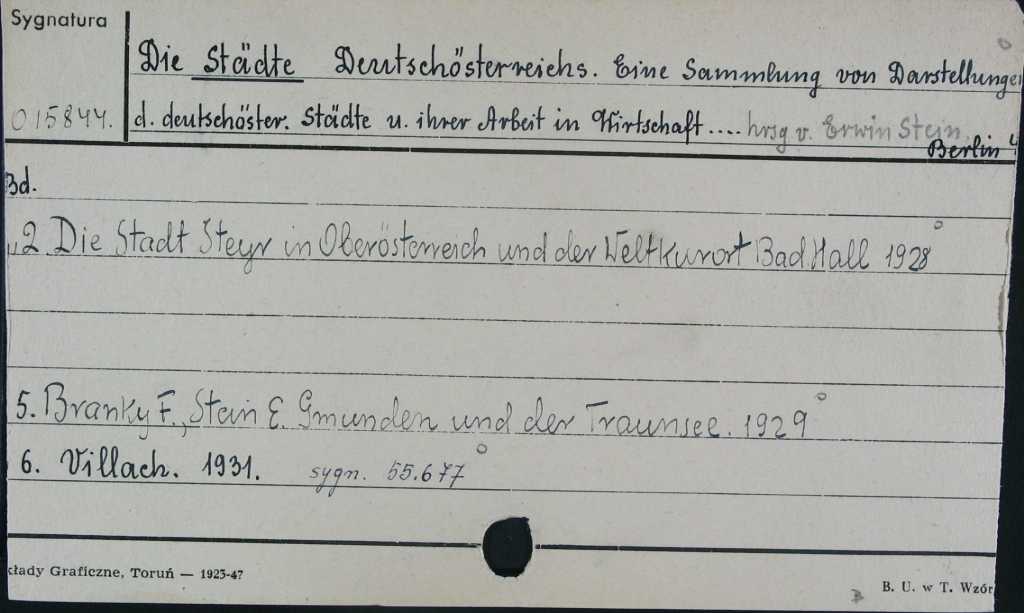 Sygnatura
Die Städte Deutschösterreichs. Eine Sammlung von Darstellungen
015844. d. deutschöster. Städte u. ihrer Arbeit in Wirtschaft.... hrsg v. Erwin Stein.
Berlin
Bd.
„2 Die Stadt Steyr in Oberösterreich und der Weltkurort Bad Hall 1928
5. Branky F., Stein E. Gmunden und der Traunsee. 1929
6. Villach. 1931. sygn. 55.677
kłady Graficzne, Toruń — 1925-47
B. U. w T. Wzór